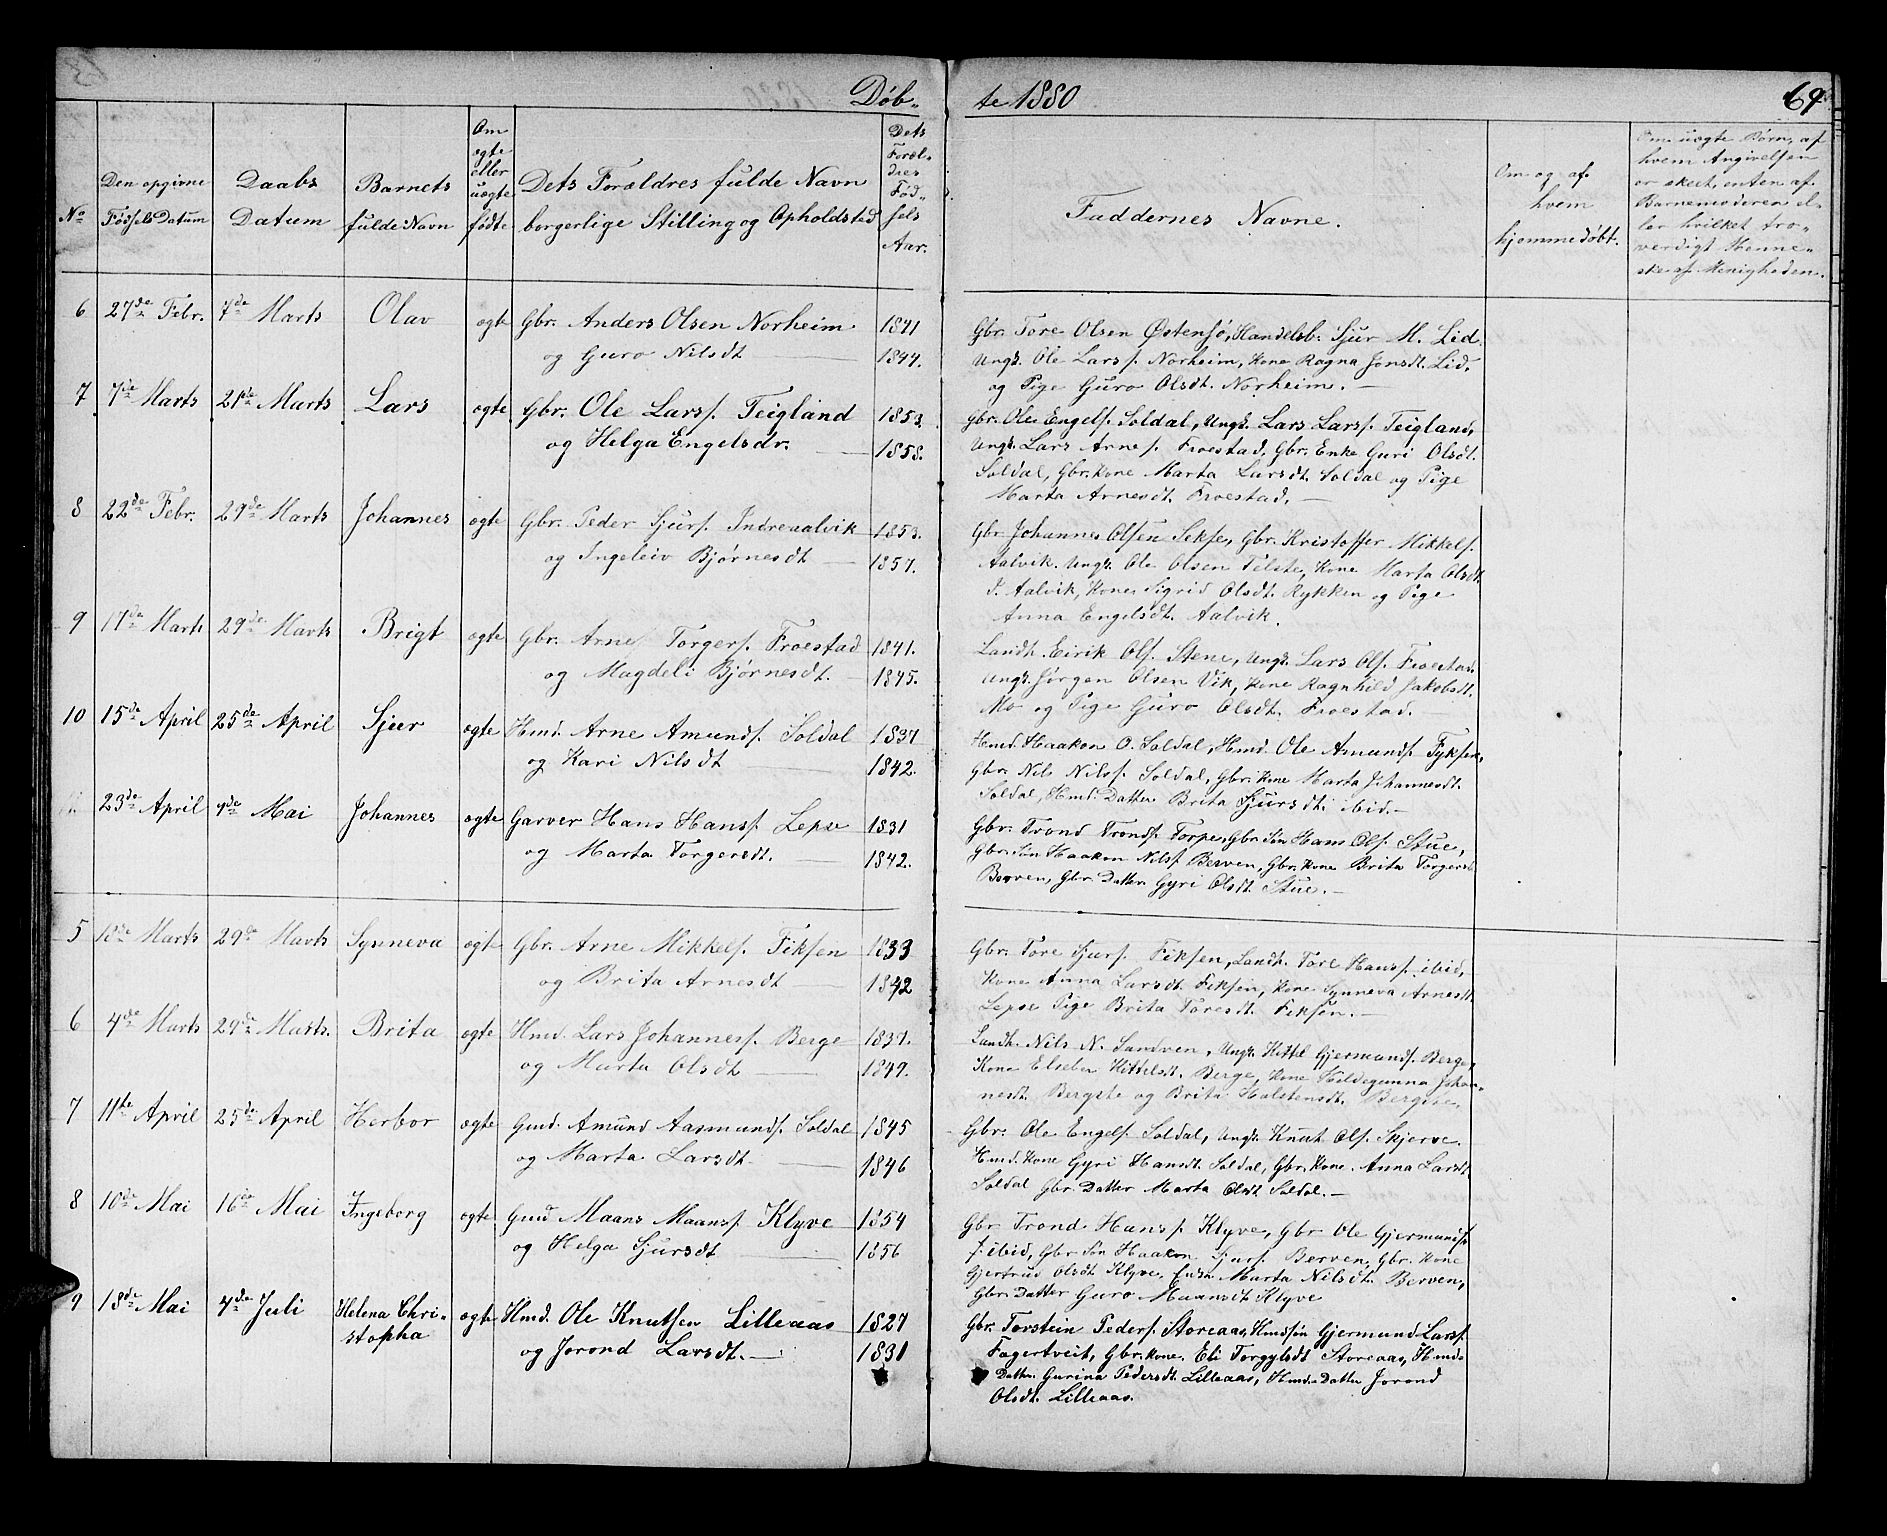 Døb-
te 1880
69
No
Den opgivne Fødsels Datum
Daabs Datum
Barnets fulde Navn
Om ægte eller uægte fødte
Dets Forældres fulde Navn borgerlige Stilling og Opholdsted
Dets Foræl- dres Fød- sels Aar.
Faddernes Navne.
Om og af hvem hjemmedøbt.
Om uægte Børn, af hvem Angivelsen er skeet, enten af Barnemoderen el- ler hvilket tro- værdigt Menne- ske af Menigheden.
6 27de Febr. 7de Marts Olav ægte Gbr. Anders Olsen Norheim 1841
og Guro Nilsdt 1844.
Gbr. Tore Olsen Østensø, Handelsb. Sjur M. Lid
Ungk. Ole Larss. Norheim, Kone Ragna Jonsdt. Lid,
og Pige Guro Olsdt. Norheim. —
7 7de Marts 21de Marts Lars ægte Gbr. Ole Larss. Teigland 1853.
og Helga Engelsdr. 1858.
Gbr. Ole Engels. Soldal, Ungk. Lars Larss. Teigland,
Ungk. Lars Arnes. Froestad, Gbr. Enke Guri Olsdt.
Soldal, Gbr. Kone Marta Larsdt. Soldal og Pige
Marta Arnesdt. Froestad. —
8 22de Febr. 29de Marts Johannes ægte Gbr. Peder Sjurs. Indreaalvik 1853.
og Ingeleiv Bjørnesdt 1857.
Gbr. Johannes Olsen Sekse, Gbr. Kristoffer Mikkels.
Aalvik. Ungk. Ole Olsen Telste, Kone Marta Olsdt.
Aalvik, Kone Sigrid Olsdt. Rykken og Pige
Anna Engelsdt. Aalvik.
9 17de Marts 29de Marts Brigt ægte Gbr. Arne Torgers. Froestad 1841.
og Magdeli Bjørnesdt. 1845.
Landh. Eirik Ols. Stene, Ungk. Lars Ols. Froestad,
Ungk. Jørgen Olsen Vik, Kone Ragnhild Jakobsdt.
Mo og Pige Guro Olsdt. Froestad. —
10 15de April 25de April Sjur ægte Hmd. Arne Amunds. Soldal 1837
og Kari Nilsdt 1842.
Hmd. Haakon O. Soldal, Hmd. Ole Amunds. Fyksen,
Gbr. Nils Nilss. Soldal, Gbr. Kone Marta Johannesdt.
Soldal, Hmd. Datter Brita Sjursdt. ibid. —
11 23de April 7de Mai Johannes ægte Garver Hans Hanss. Lepse 1831
og Marta Torgersdt. 1842.
Gbr. Trond Tronds. Torpe, Gbr. Søn Hans Ols. Stue,
Gbr. Søn Haakon Nilss. Berven, Gbr. Kone Brita Torgersd.
Berven, Gbr. Datter Gyri Olsdt. Stue. —
5 18de Marts 29de Marts Synneva ægte Gbr. Arne Mikkels. Fiksen 1833
og Brita Arnesdt 1842
Gbr. Tore Sjurs. Fiksen, Landh. Tore Hanss. ibid,
Kone Anna Larsdt. Fiksen, Kone Synneva Arnesdt.
Lepse Pige Brita Toresdt. Fiksen. —
6 4de Marts 29de Marts. Brita ægte Hmd. Lars Johanness. Berge 1837.
og Marta Olsdt 1849.
Landh. Nils N. Sandven, Ungk. Kittil Gjermunds. Berge,
Kone Elseber Kittilsdt. Berge, Kone Hildegunna Johan-
nesdt. Bergste og Brita Halstensdt. Bergste.
7 11te April 25de April Herbor ægte Gmd. Amund Aasmunds. Soldal 1845
og Marta Larsdt. 1846
Gbr. Ole Engels. Soldal, Ungk. Knut Ols. Skjerve.
Hmd. Kone Gyri Hansdt. Soldal, Gbr. Kone. Anna Larsdt.
Soldal Gbr. Datter Marta Olsdt. Soldal. —
8 10de Mai 16de Mai Ingeborg ægte Gmd Maans Maanss. Klyve 1854
og Helga Sjursdt 1856
Gbr Trond Hanss. Klyve, Gbr Ole Gjermunds.
ibid, Gbr Søn Haakon Sjurs. Berven, Gbr. Kone
Gjertrud Olsdt. Klyve, Enke Marta Nilsdt. Berven,
Gbr. Datter Guro Maansdt. Klyve
9 18de Mai 4de Juli Helena Chri-
stopha ægte Hmd. Ole Knutsen Lilleaas 1827
og Jorond Larsdt. — 1831
Gbr. Torstein Peders. Storeaas, Hmd søn Gjermund Larss.
Fagertveit, Gbr. Kone. Eli Torgylsdt Storeaas, Hmd.
Datter. Gurina Pedersdt. Lilleaas, Hmd. Datter Jorond
Olsdt. Lilleaas.